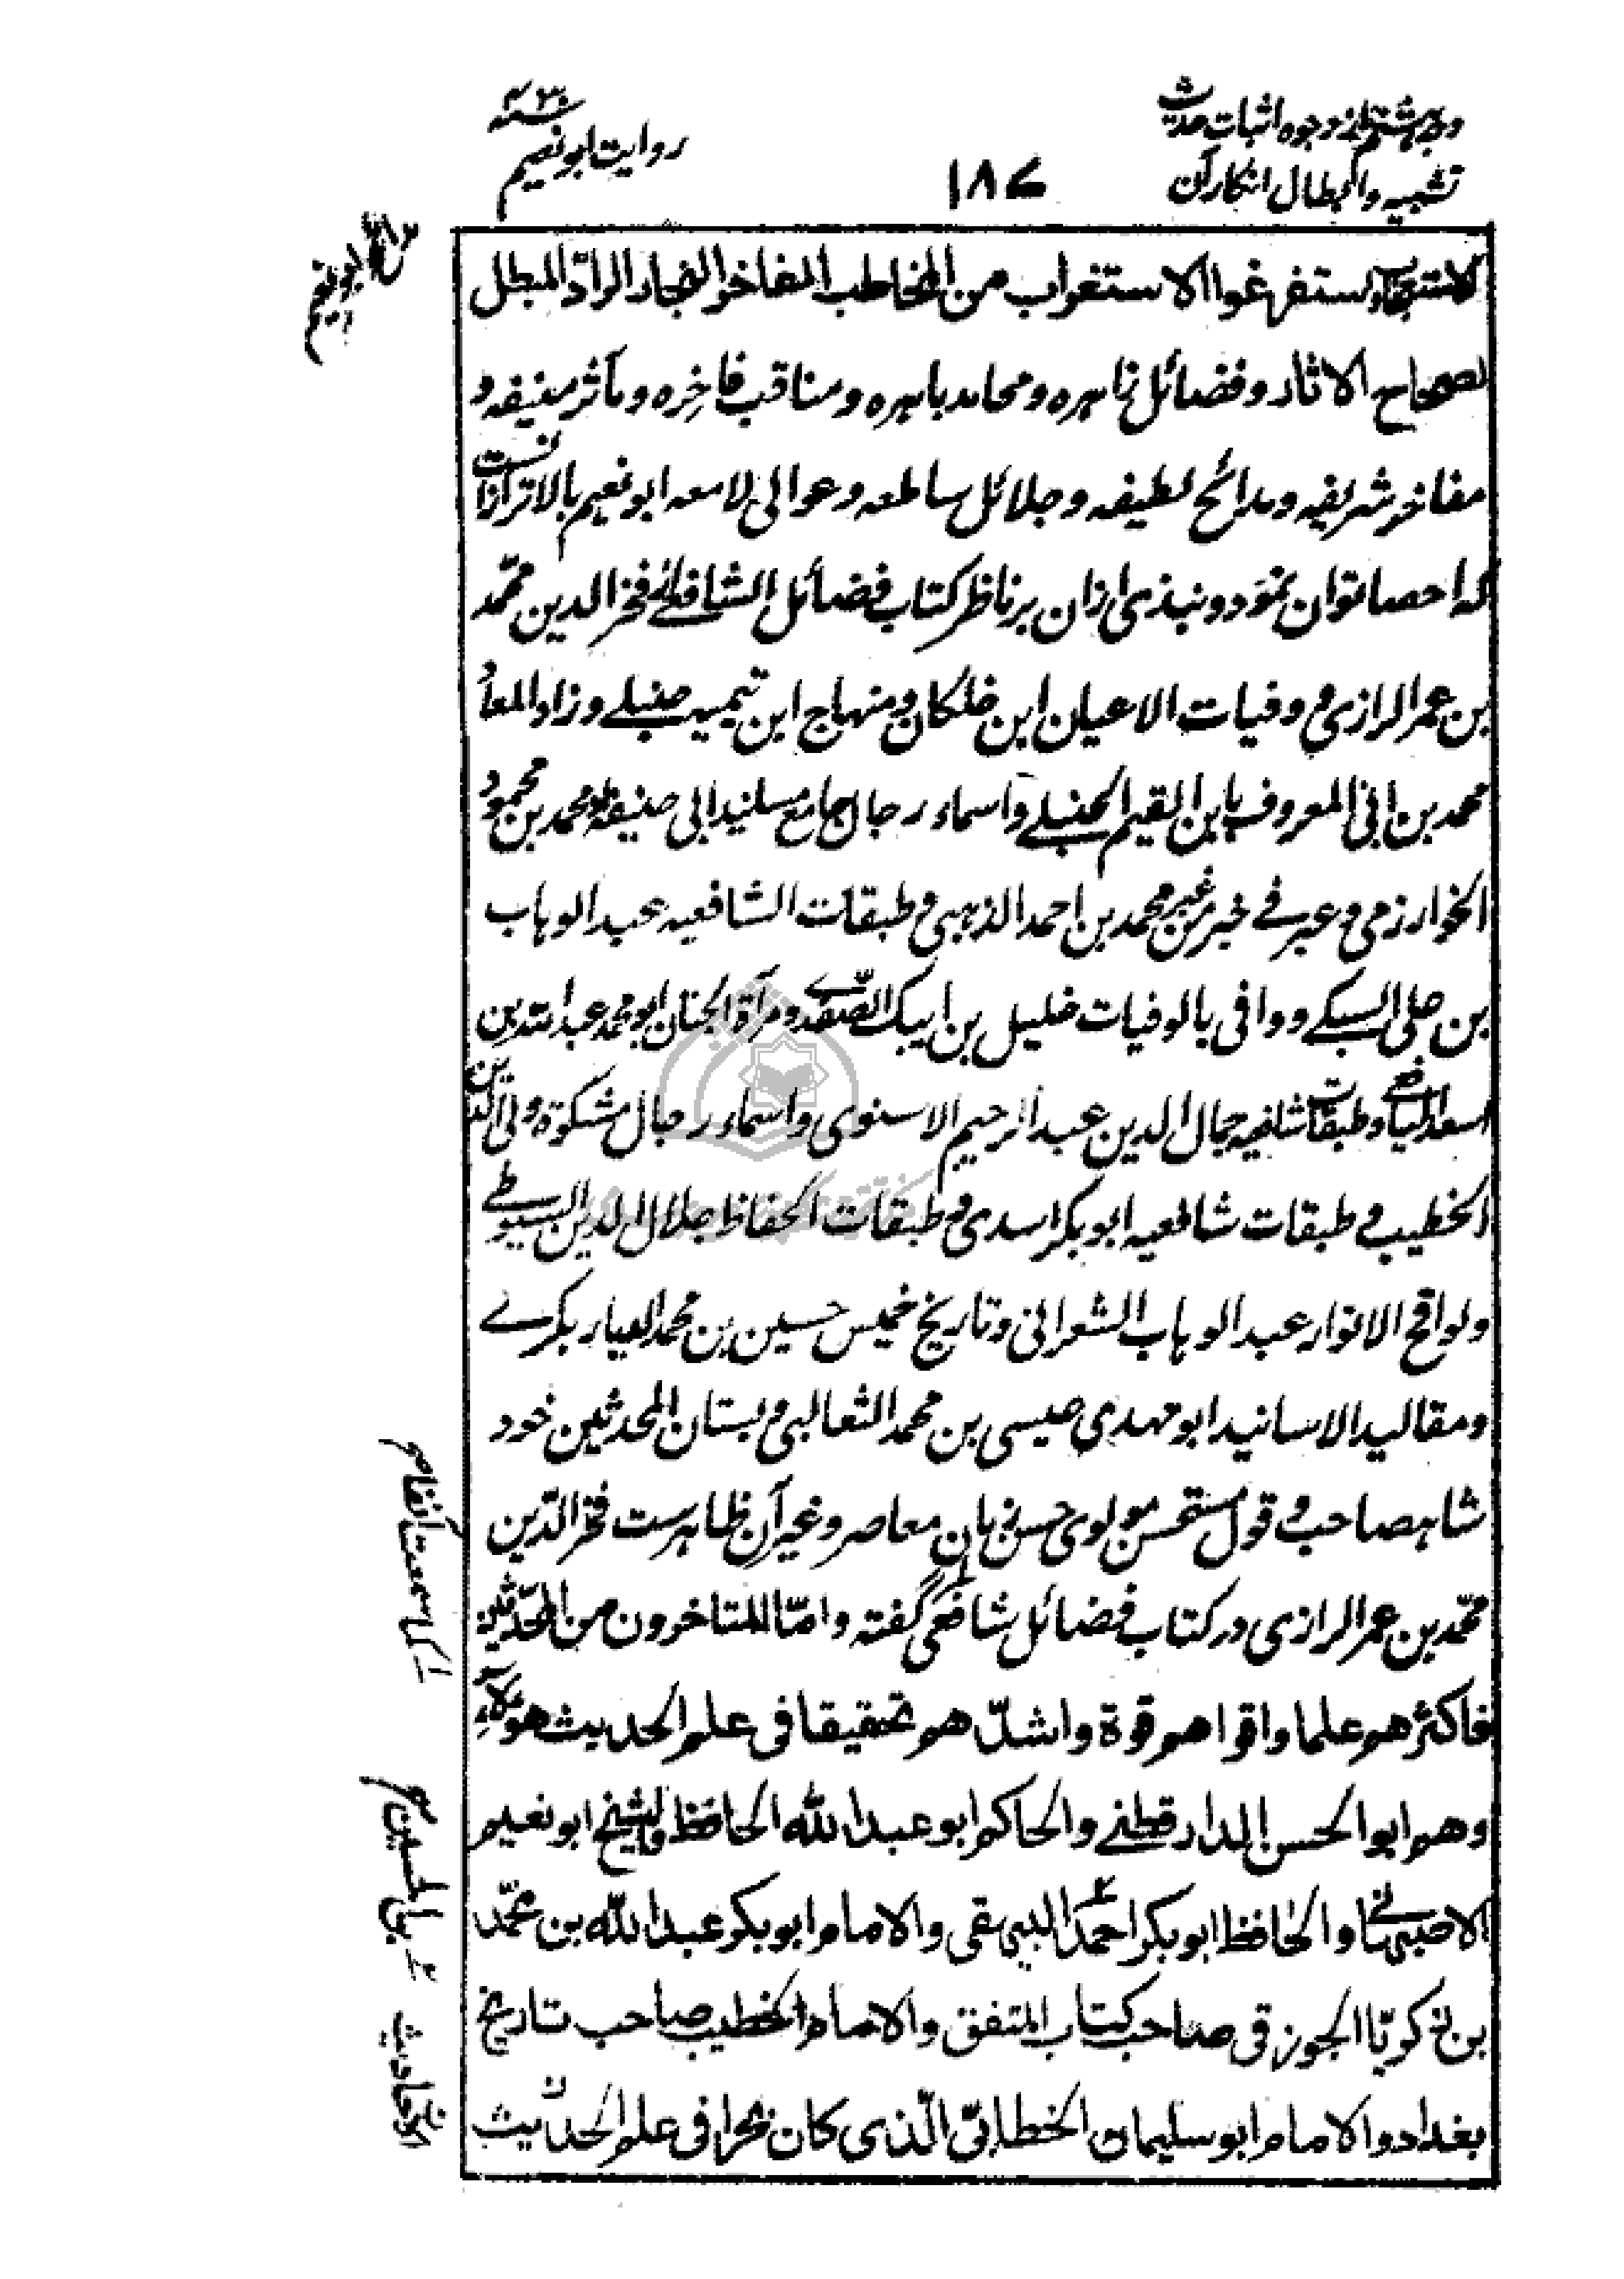 وجه هشتم از وجوه اثبات حدیث
تشبیه و ابطال انکار آن
۱۸۷
روایت ابونعیم
مدائح ابونعیم
الاستعجاب واستفرغوا الاستغراب من المخاطب المفاخر الفجار الرادّ المبطل
لصحاح الاثار و فضائل زاهره و محامد باهره و مناقب فاخره و مآثر منیفه و
مفاخر شریفه و مدائح لطیفه و جلائل ساطعه و عوالی لامعه ابونعیم بالاتر ازانست
که احصا توان نمود و نبذی ازان بر ناظر کتاب فضائل الشافعی فخر الدین محمّد
بن عمر الرازی و وفیات الاعیان ابن خلکان و منهاج ابن تیمیه حنبلے و زاد المعاد
محمد بن ابی المعروف بابن القیم الحنبلے و اسماء رجال جامع مسانید ابی حنیفة محمد بن محمود
الخوارزمی و عبر فے خبر من غبر محمد بن احمد الذهبی و طبقات الشافعیه عبد الوهاب
بن علی السبکے و وافی بالوفیات خلیل بن ایبک الصّفدے و مرآة الجنان ابو محمد عبد الله بن
اسعد الیافعے و طبقات شافعیه جمال الدین عبد الرحیم الاسنوی و اسماء رجال مشکوة ولی الدین
الخطیب و طبقات شافعیه ابوبکر اسدی و طبقات الحفاظ جلال الدین السیوطے
و لواقح الانوار عبد الوهاب الشعرانی و تاریخ خمیس حسین بن محمد الدیار بکرے
و مقالید الاسانید ابو مهدی عیسی بن محمد الثعالبی و بستان المحدثین خود
شاهصاحب و قول مستحسن مولوی حسن زمان معاصر و غیر آن ظاهرست فخر الدّین
محمّد بن عمر الرازی در کتاب فضائل شافعی گفته و امّا المتاخرون من المحدّثین
فاکثرهم علما و اقواهم قوة و اشدّهم تحقیقا فی علم الحدیث هؤلاء
و هم ابو الحسن الدارقطنے و الحاکم ابو عبد الله الحافظ و الشیخ ابو نعیم
الاصبهانے و الحافظ ابوبکر احمد البیهقی و الامام ابوبکر عبد الله بن محمّد
بن زکریّا الجوزقی صاحب کتاب المتفق و الامام الخطیب صاحب تاریخ
بغداد و الامام ابو سلیمان الخطابیّ الّذی کان بحرا فی علم الحدیث